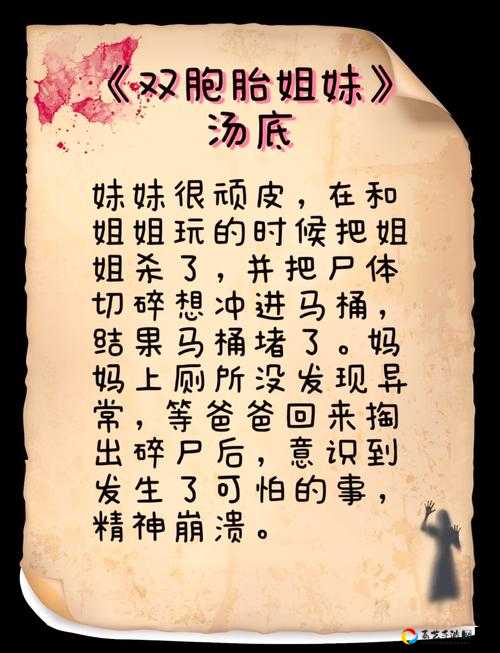 《双胞胎姐妹》
汤底
妹妹很顽皮，在和
姐姐玩的时候把姐
姐杀了，并把尸体
切碎想冲进马桶，
结果马桶堵了。妈
妈上厕所没发现异
常，等爸爸回来掏
出碎尸后，意识到
发生了可怕的事，
精神崩溃。